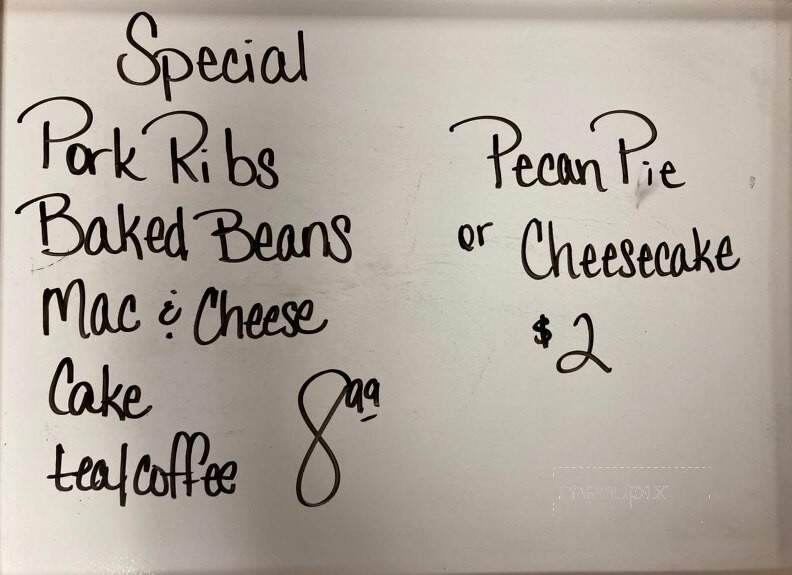 Special
Pork Ribs
Baked Beans
Mac & Cheese
Cake
tea/coffee
8.99
Pecan Pie
or Cheesecake
$2
menupix